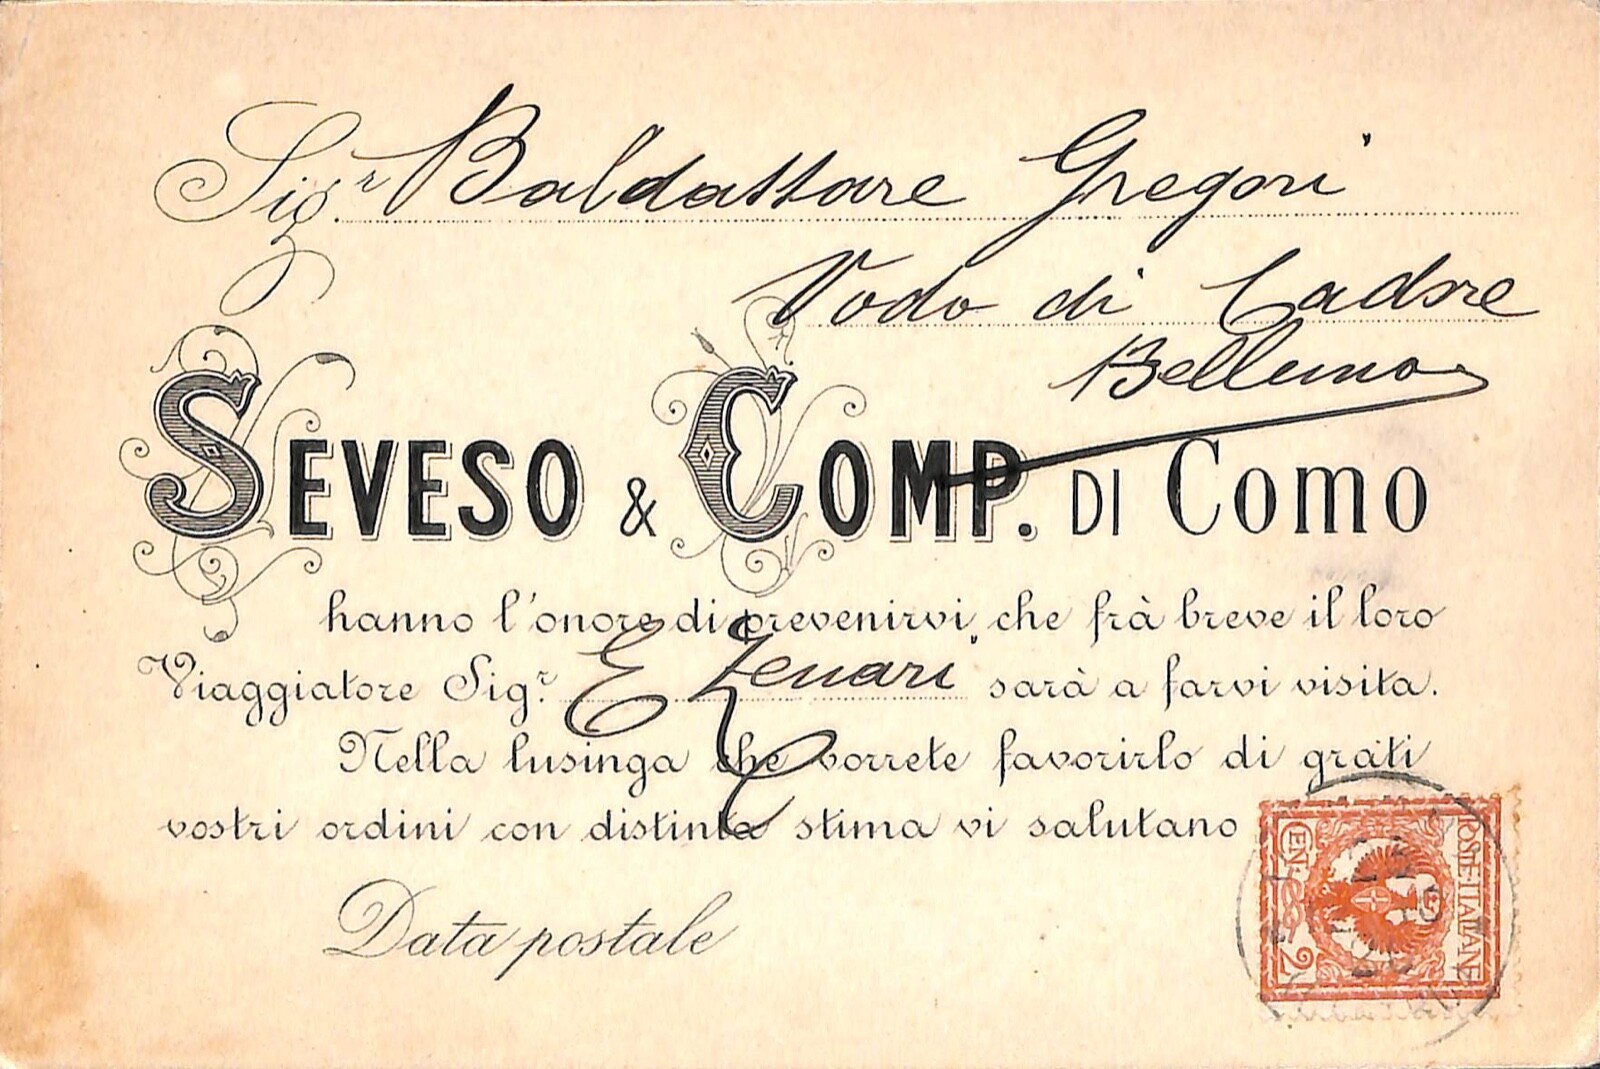 Sigr. Baldassare Gregori
Vodo di Cadore
Belluno
SEVESO & COMP. DI COMO
hanno l'onore di prevenirvi che frà breve il loro
Viaggiatore Sigr. E Zenari sarà a farvi visita.
Nella lusinga che vorrete favorirlo di grati
vostri ordini con distinta stima vi salutano
Data postale
POSTE·ITALIANE
CEN. 2